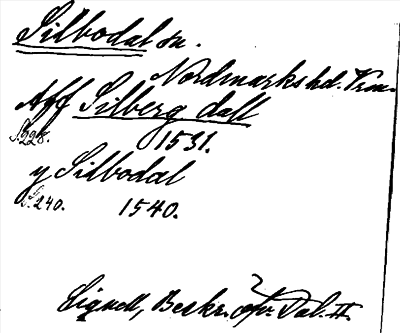 Silbodal sn.
Nordmarks hd. Vrm.
Aff Silberg dall
S. 228. 1531.
y Silbodal
S. 240. 1540.
Lignell, Beskr. öfv. Dal. II.